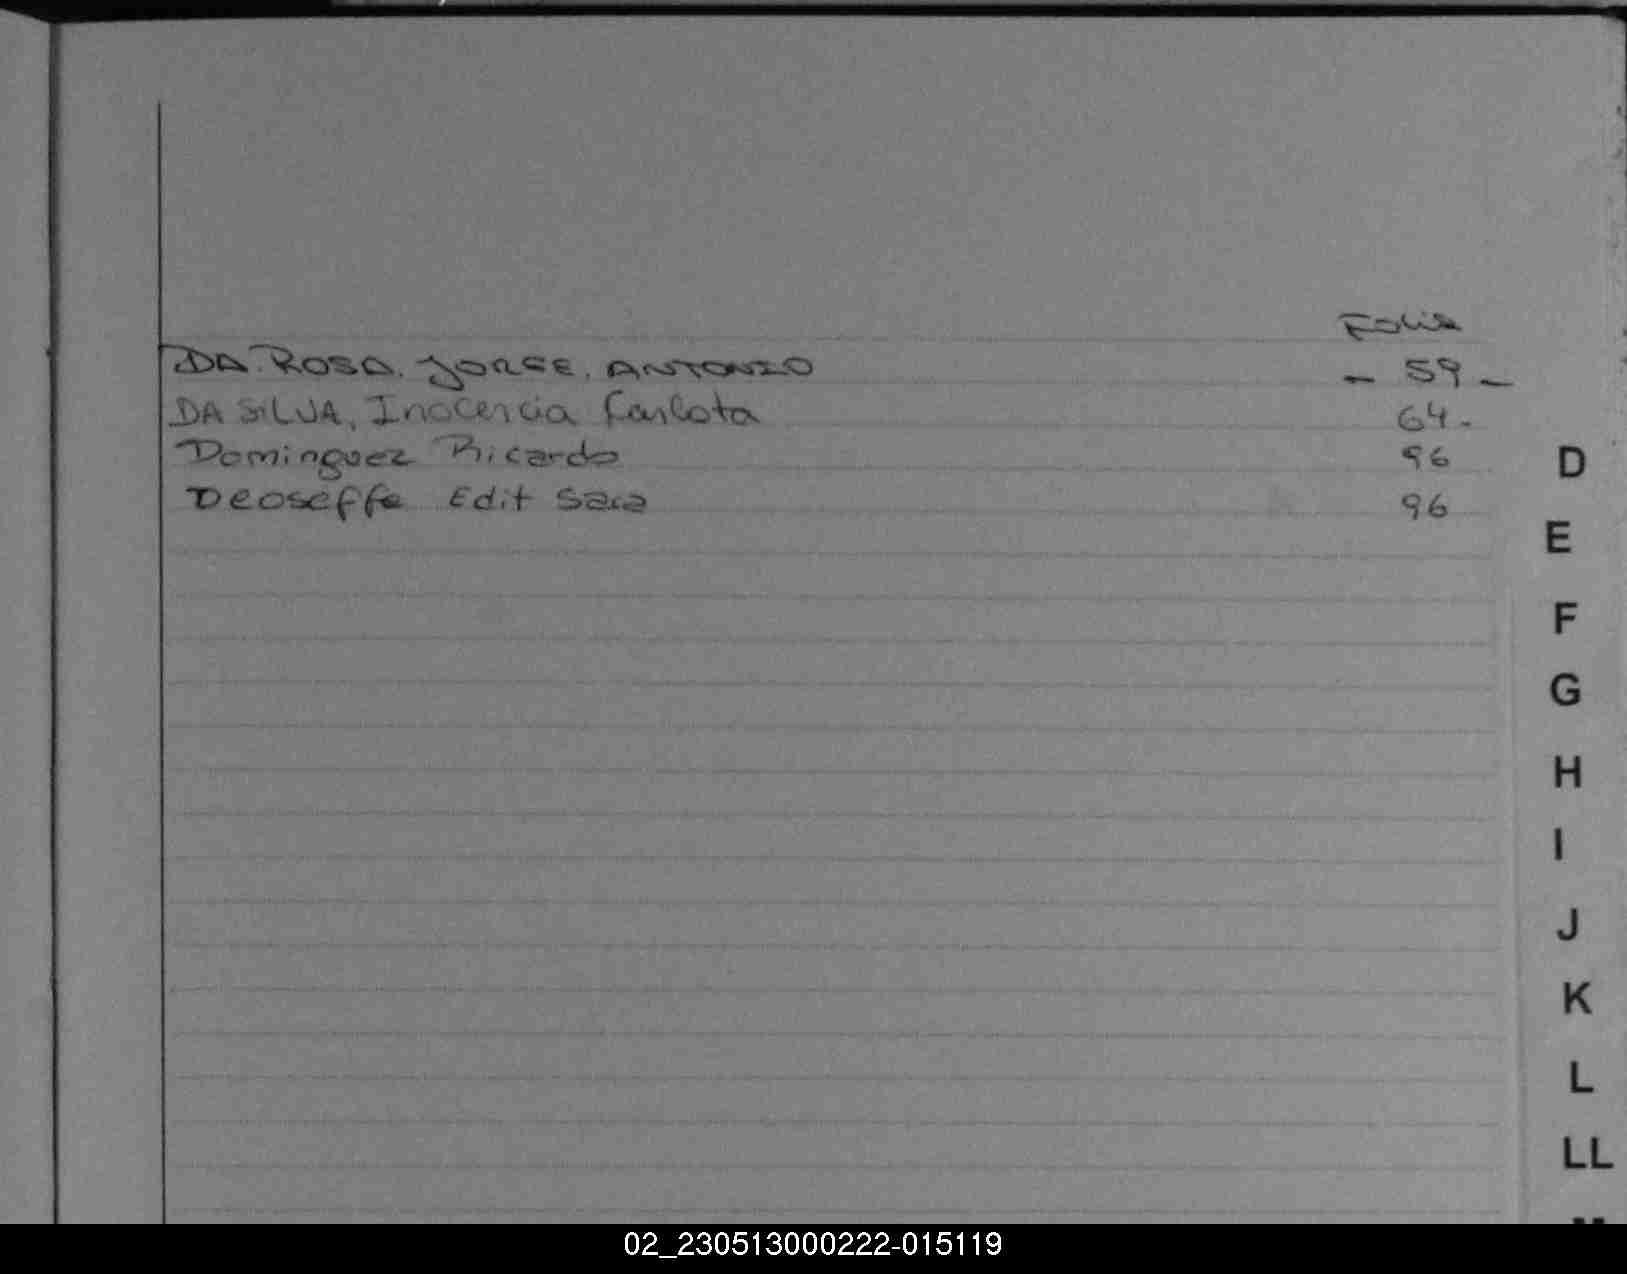 Folio
DA. ROSA. JORGE. ANTONIO - 59 -
DA SILVA, Inocencia Carlota 64.
Dominguez Ricardo 96
Deoseffe Edit Sara 96
D
E
F
G
H
I
J
K
L
LL
02_230513000222-015119